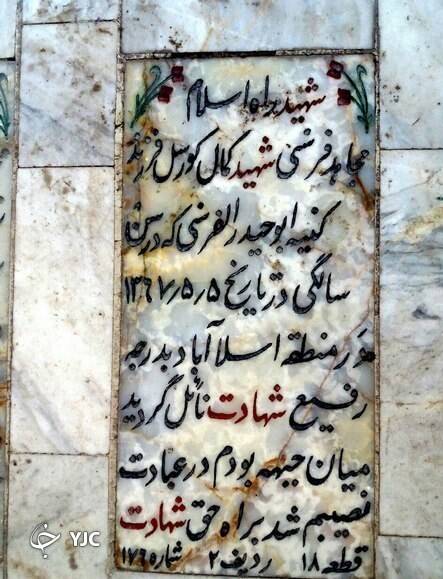 شهید براه اسلام
مجاهد فرنسی شهید کمال کورسل فرزند
کنیه ابوحیدر الفرنسی که در سن
سالگی در تاریخ ۱۳۶۷/۵/۵
در منطقه اسلام آباد بدرجه
رفیع شهادت نائل گردید
میان جبهه بودم در عبادت
نصیبم شد براه حق شهادت
قطعه ۱۸ ردیف ۲ شماره ۱۷۶
YJC